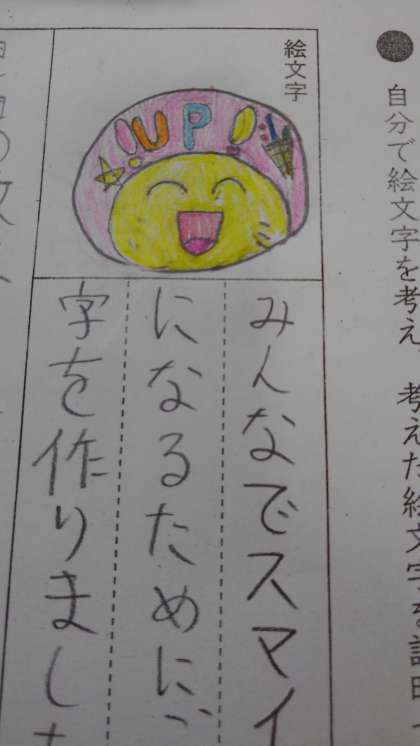 自分で絵文字を考え 考えた絵文字を説明
絵文字
!UP!
みんなでスマイ
になるために
字を作りまし